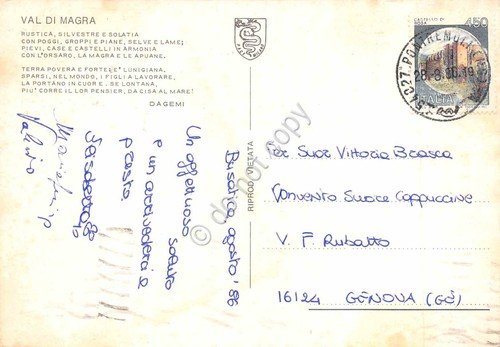 VAL DI MAGRA
RUSTICA, SILVESTRE E SOLATIA
CON POGGI, GROPPI E PIANE, SELVE E LAME;
PIEVI, CASE E CASTELLI IN ARMONIA
CON L'ORSARO, LA MAGRA E LE APUANE.
TERRA POVERA E FORTE E' LUNIGIANA,
SPARSI, NEL MONDO, I FIGLI A LAVORARE,
LA PORTANO IN CUOR E, SE LONTANA,
PIU' CORRE IL LOR PENSIER, DA CISA AL MARE!
DAGEMI
RIPROD. VIETATA
CASTELLO DI
450
ITALIA
54027 PONTREMOLI
Busatica, agosto '86
Un affettuoso saluto
e un arrivederci a
presto
Per Suor Vittoria Brasca
Convento Suore Cappuccine
V. F. Rubatto
16124 GENOVA (GE)
do not copy